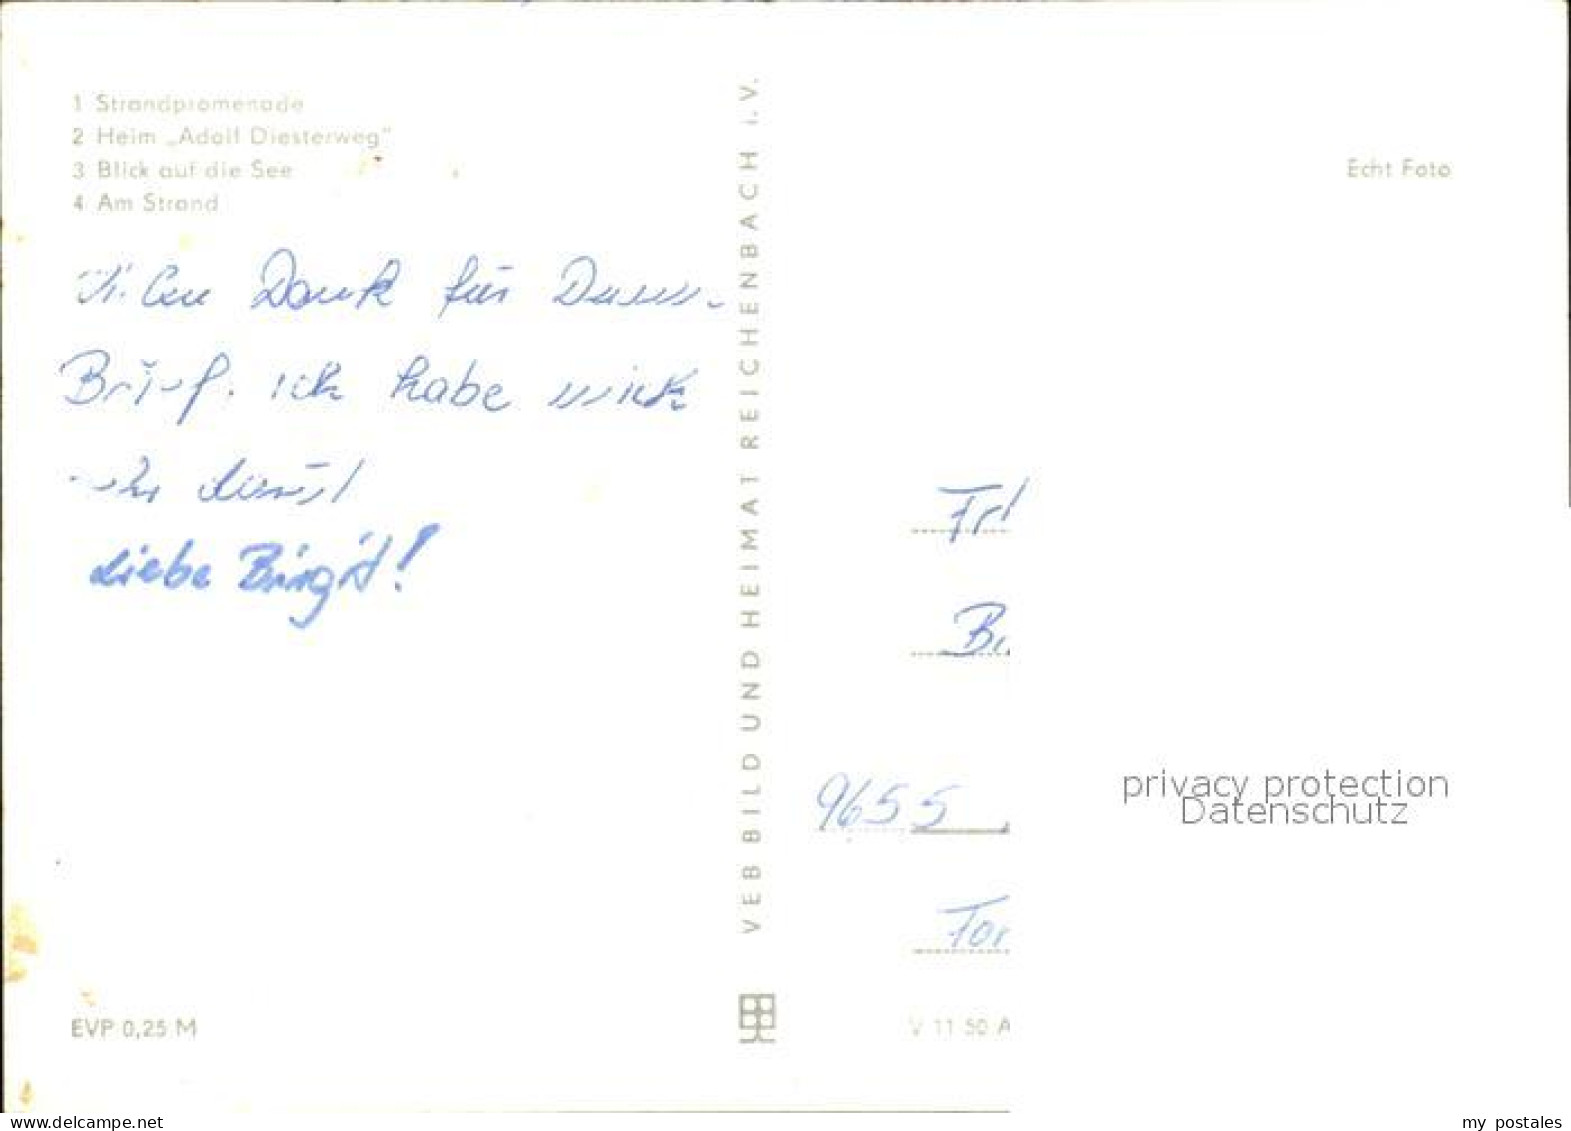 1 Strandpromenade
2 Heim „Adolf Diesterweg"
3 Blick auf die See
4 Am Strand
Echt Foto
Vielen Dank für Deinen
Brief. Ich habe mich
sehr darüber
Liebe Birgit!
VEB BILD UND HEIMAT REICHENBACH i. V.
Frl
Bi
9655
Tor
privacy protection
Datenschutz
EVP 0,25 M
V 11 50 A
delcampe.net
my_postales